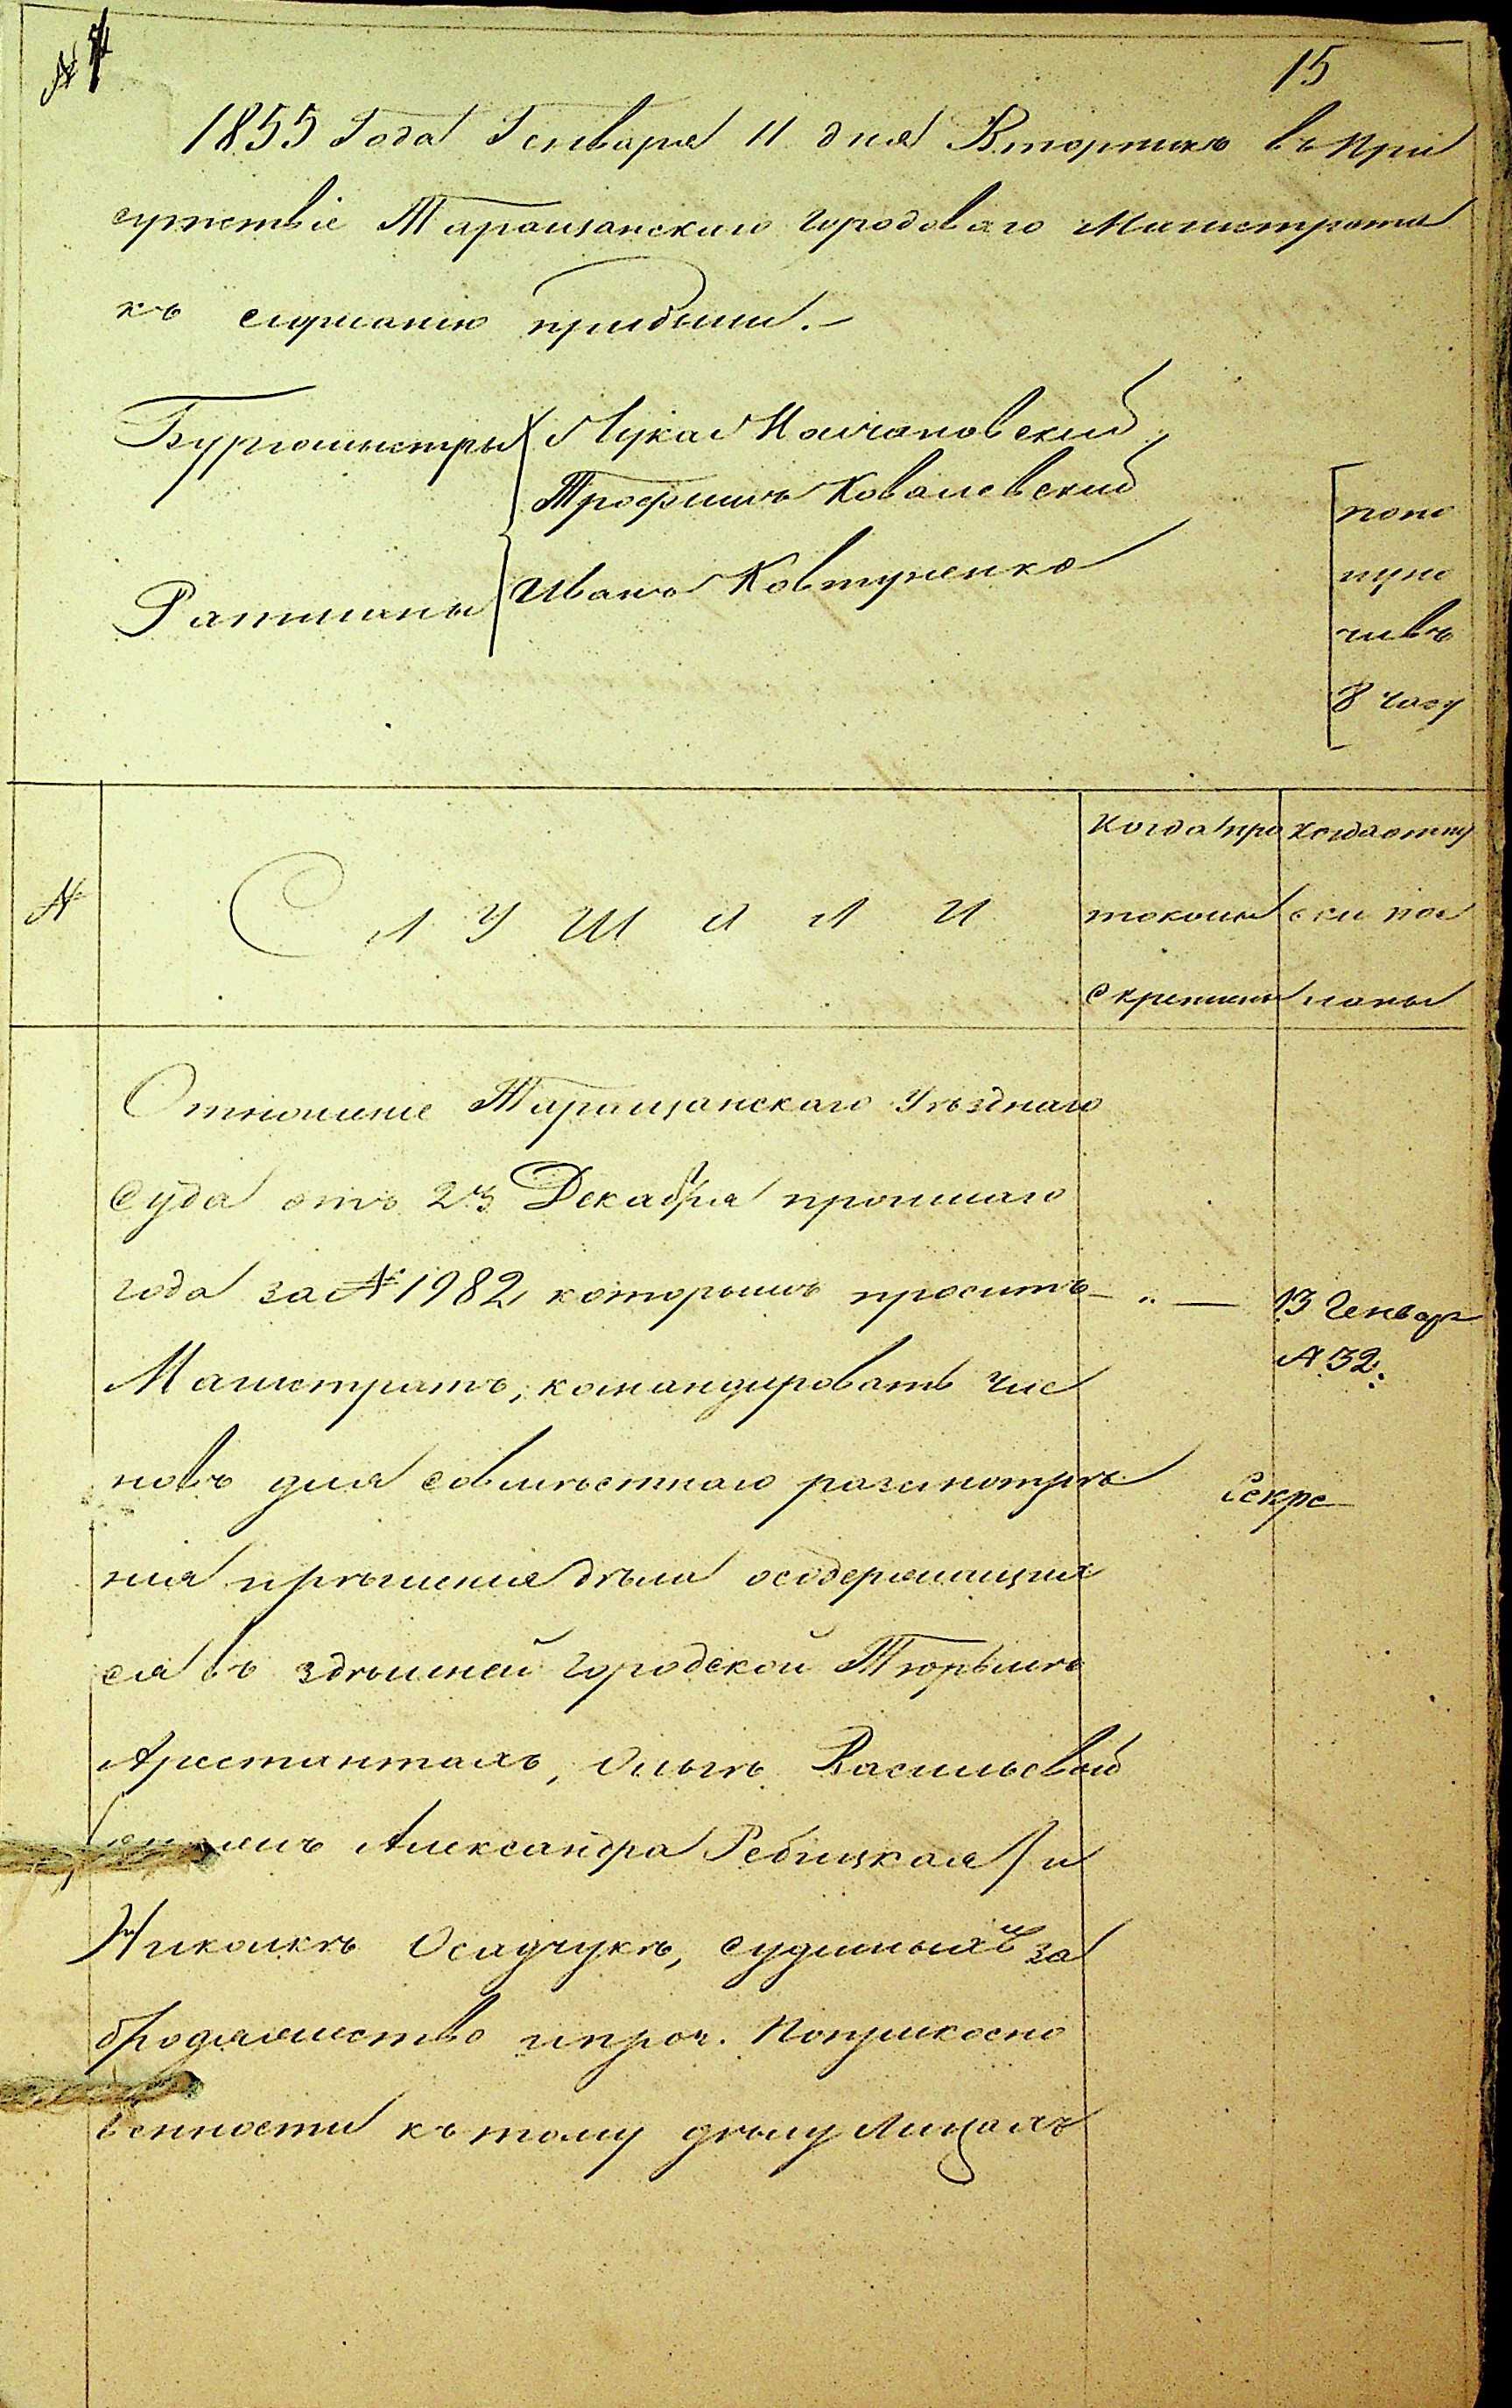 № 4
15
1855 Года Генваря 11 дня Вторникъ въ При
сутствіе Таращанскаго Городоваго Магистрата
къ слушанію прибыли.
Бургомыстры Лука Молчановский
Трофимъ Ковалевский
Ратманы Иванъ Ковтуненко
попо
луно
чивъ
8 часу
№
СЛУШАЛИ
Когда про
токолы
скреплены
Когда отпу
ски пос
ланы
Отношеніе Таращанскаго Уѣзднаго
Суда отъ 23 Декабря прошлаго
года за № 1982, которымъ проситъ
Магистратъ, командировать Чле
новъ для совмѣстнаго разсмотрѣ
нія ирѣшенія дѣла осодержащих
ся въ здѣшней Городской Тюрьмѣ
Арестантахъ, Ольгѣ Васильевой
Александра Ребицкая / и
Николкѣ Осадчукѣ, судимыхъ за
бродяжество ипроч. Поприкосно
венности къ тому дѣлу Лицахъ
13 Генвар
№ 32.
Секре